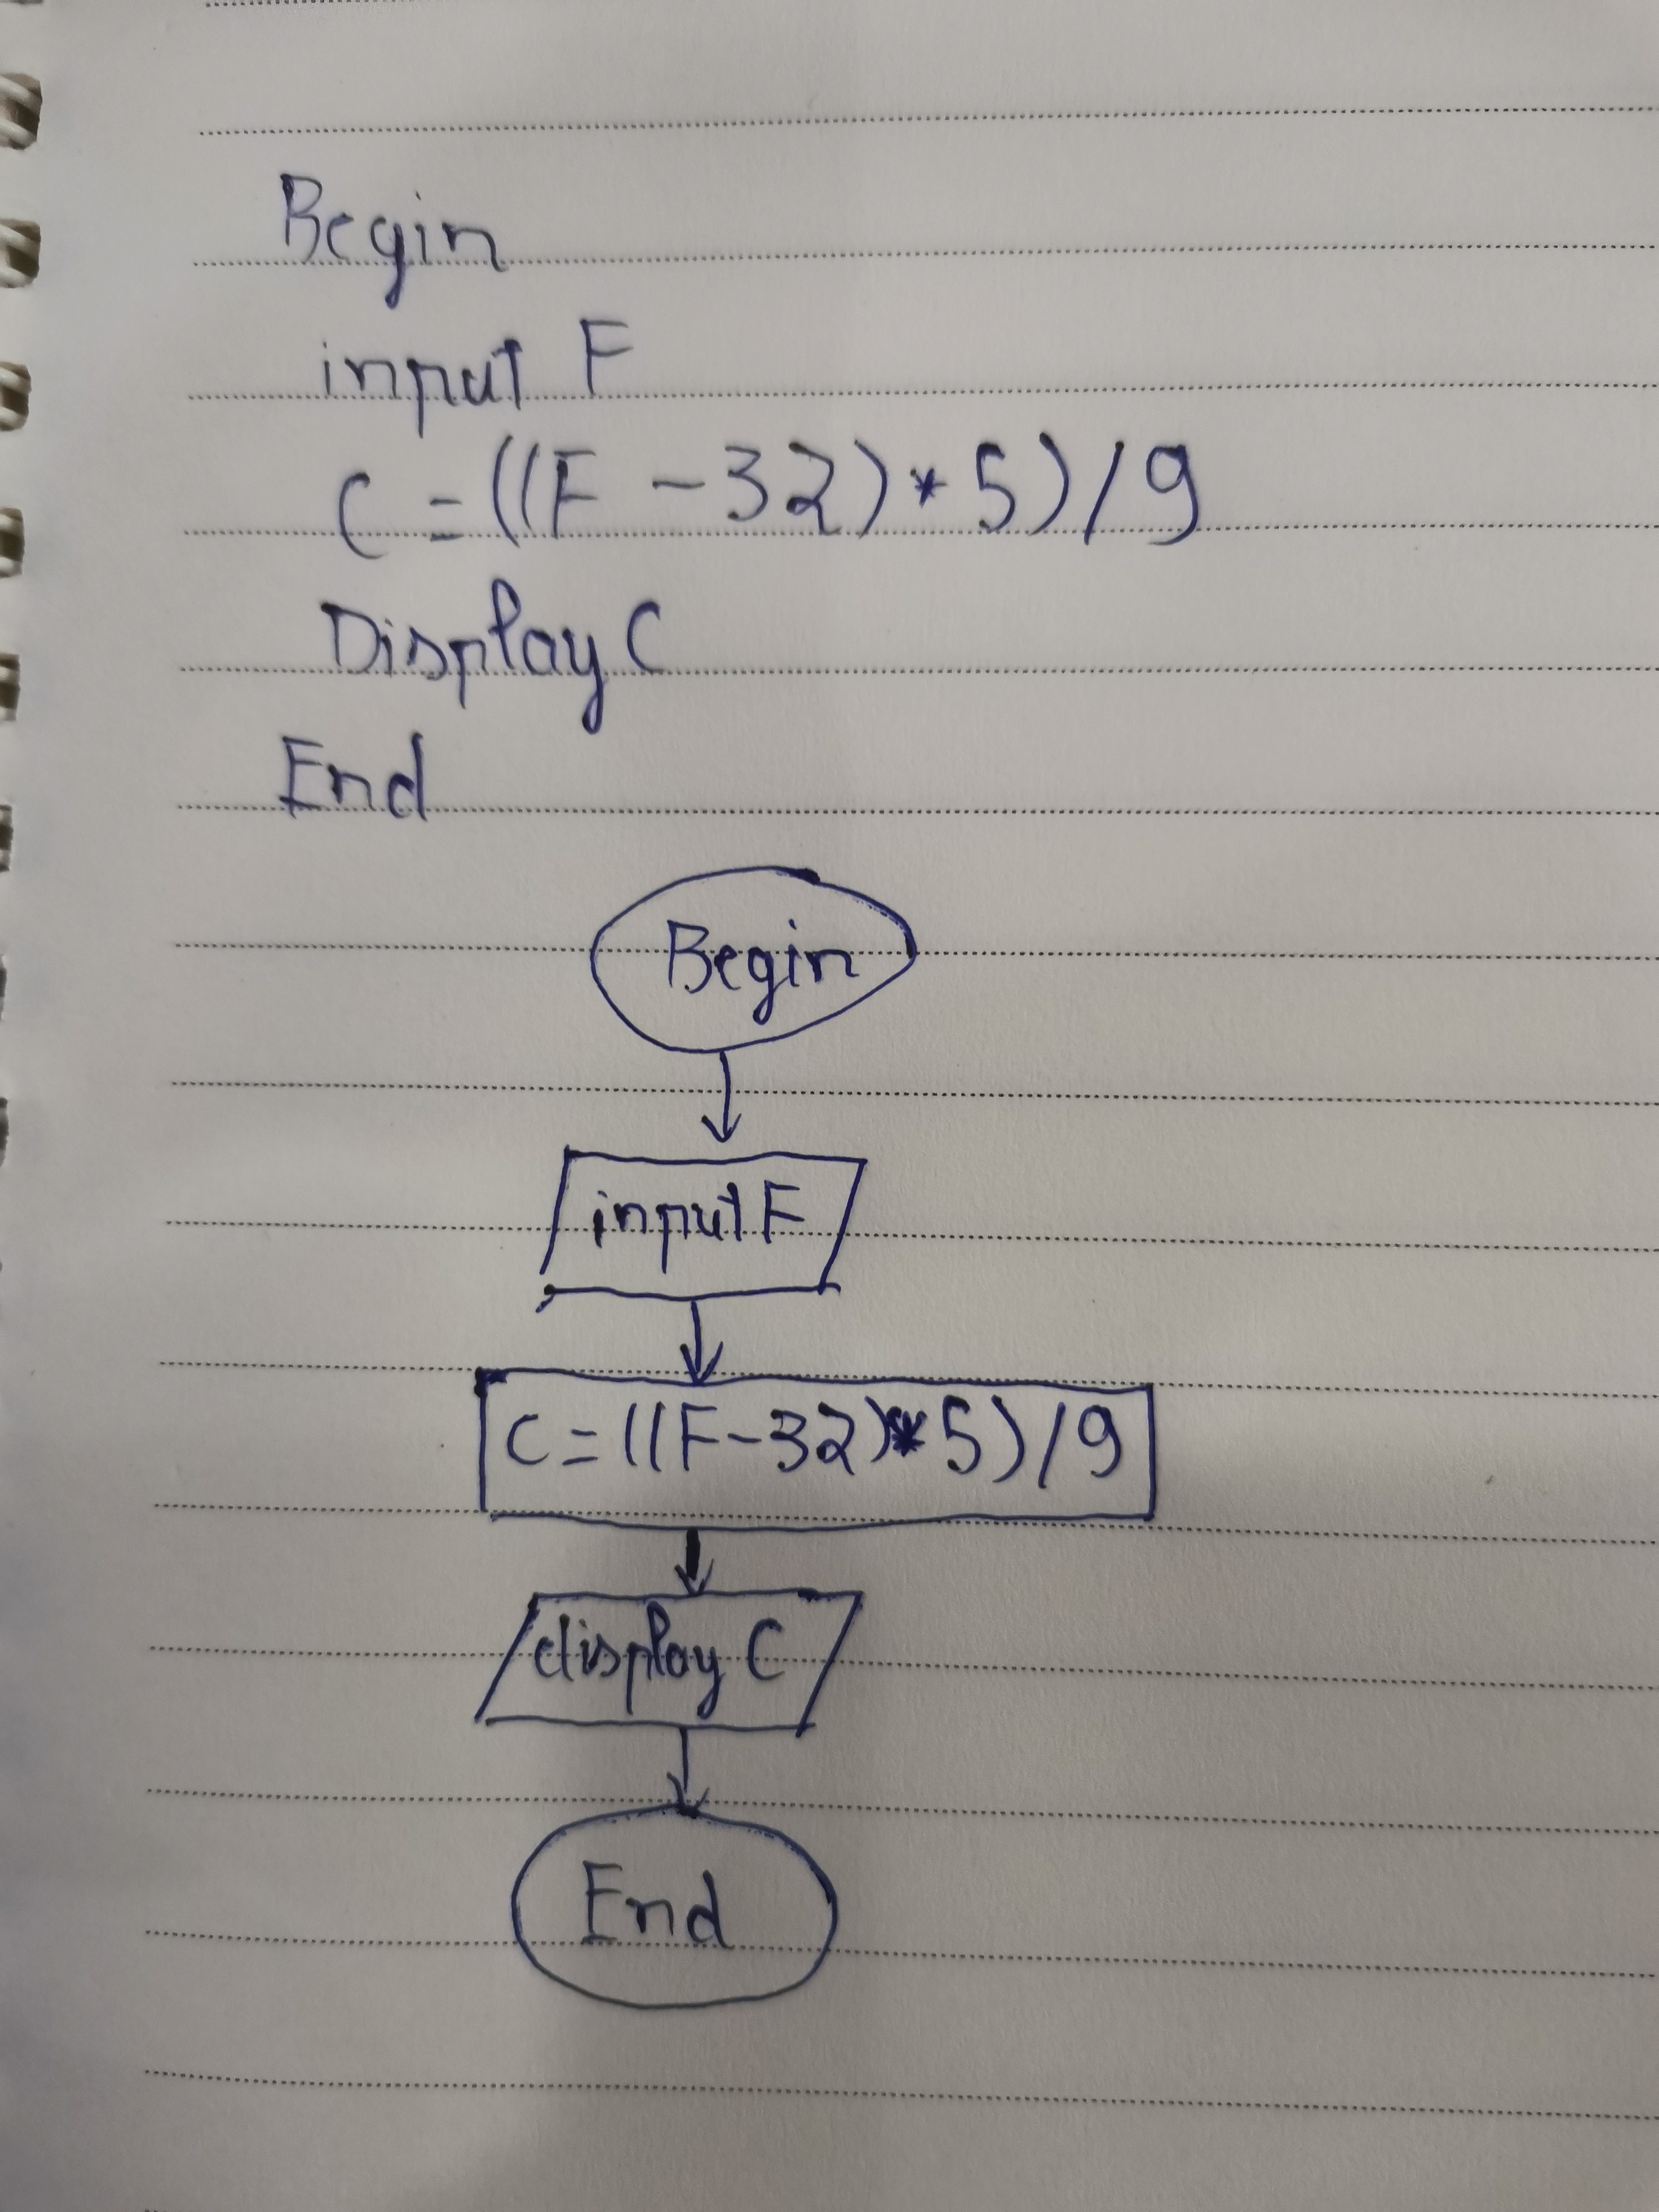 Begin
input F
C = ((F - 32) * 5) / 9
Display C
End
Begin
input F
C = ((F - 32) * 5) / 9
display C
End